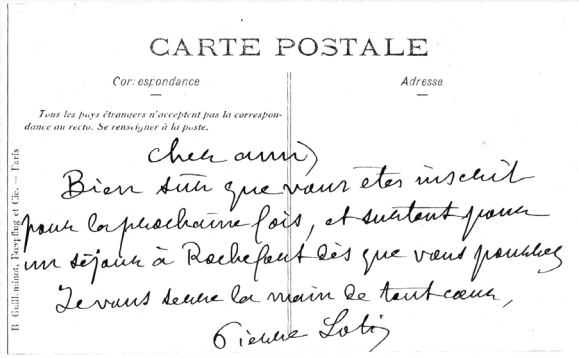 CARTE POSTALE
Correspondance
Adresse
Tous les pays étrangers n'acceptent pas la correspon-
dance au recto. Se renseigner à la poste.
B. Guilleminot, Bœspflug et Cie. — Paris
Cher ami,
Bien sûr que vous êtes inscrit
pour la prochaine fois, et surtout pour
un séjour à Rochefort dès que vous pourrez
Je vous serre la main de tout cœur,
Pierre Loti